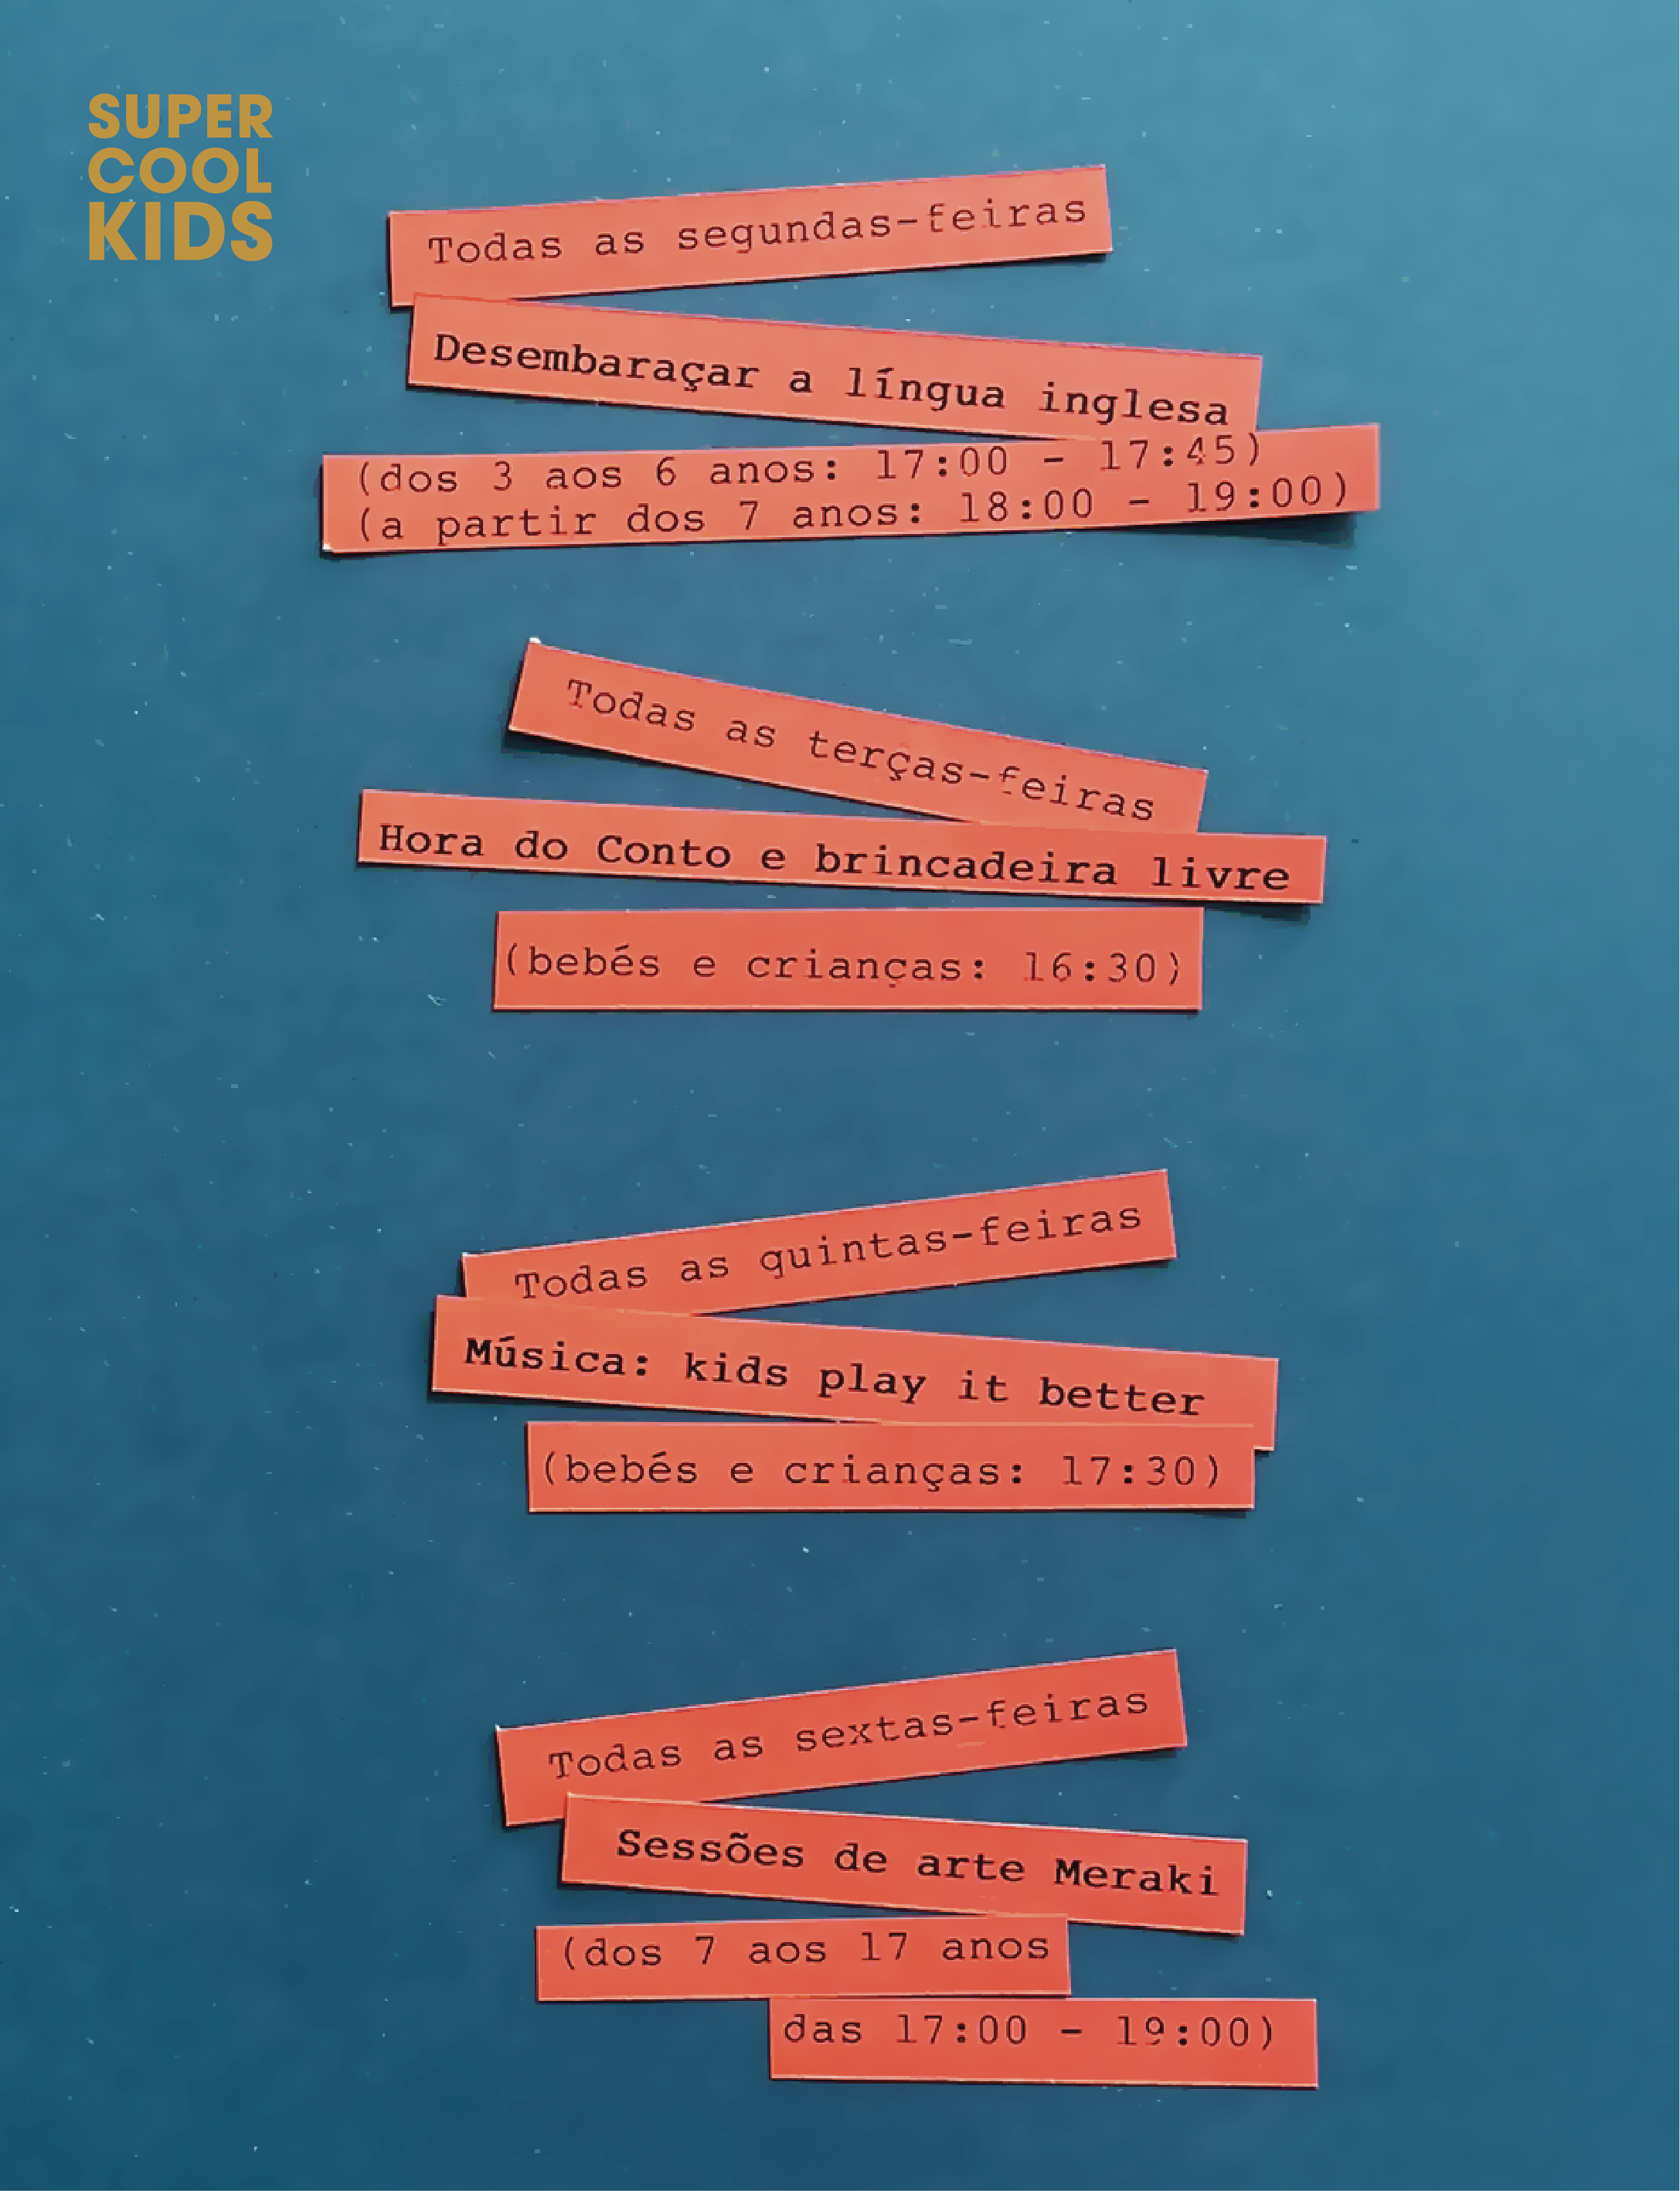 SUPER
COOL
KIDS
Todas as segundas-feiras
Desembaraçar a língua inglesa
(dos 3 aos 6 anos: 17:00 - 17:45)
(a partir dos 7 anos: 18:00 - 19:00)
Todas as terças-feiras
Hora do Conto e brincadeira livre
(bebés e crianças: 16:30)
Todas as quintas-feiras
Música: kids play it better
(bebés e crianças: 17:30)
Todas as sextas-feiras
Sessões de arte Meraki
(dos 7 aos 17 anos
das 17:00 - 19:00)